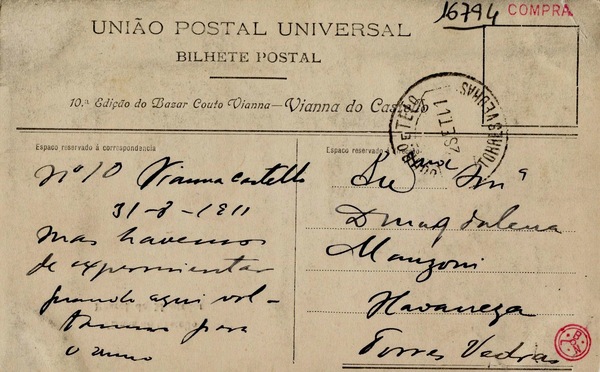 16794 COMPRA
UNIÃO POSTAL UNIVERSAL
BILHETE POSTAL
10.ª Edição do Bazar Couto Vianna—Vianna do Castello
Espaço reservado á correspondencia
Nº 10 Vianna Castello
31-8-1911
Mas havemos
de experimentar
quando aqui vol-
tarmos para
o anno
Espaço reservado á
TORRES VEDRAS
2 SET 11
Exma Srª
D. Magdalena
Manzoni
Havaneza
Torres Vedras